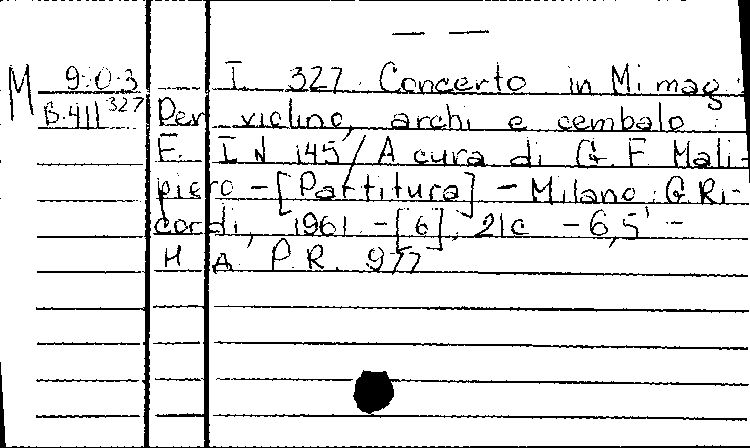 — —
M 9.0.3 T. 327. Concerto in Mi mag :
B.411 327 Per violino, archi e cembalo :
F. I N 145 / A cura di G. F Mali-
piero - [Partitura] - Milano : G. Ri-
cordi, 1961 - [6], 21c - 6,5' -
H A P.R. 977